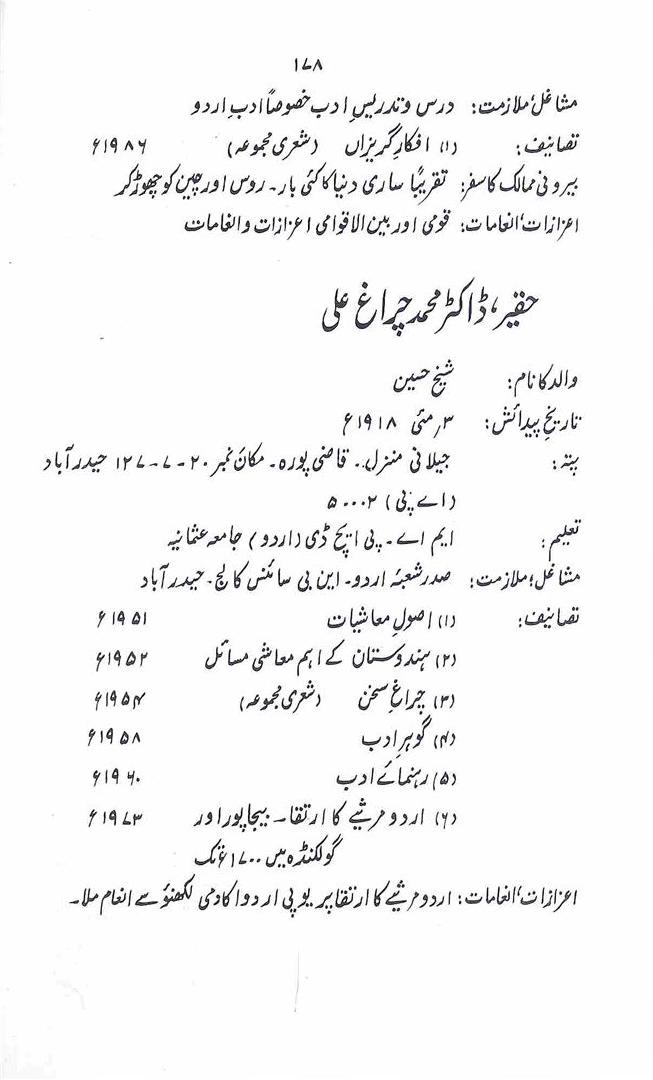 ۱۷۸
مشاغل؍ملازمت: درس و تدریسِ ادب خصوصاً ادبِ اردو
تصانیف: (۱) افکارِ گریزاں (شعری مجموعہ) ۱۹۸۶ء
بیرونی ممالک کا سفر: تقریباً ساری دنیا کا کئی بار۔ روس اور چین کو چھوڑ کر
اعزازات؍انعامات: قومی اور بین الاقوامی اعزازات و انعامات
حقیر، ڈاکٹر محمد چراغ علی
والد کا نام: شیخ حسین
تاریخِ پیدائش: ۳؍مئی ۱۹۱۸ء
پتہ: جیلانی منزل۔ قاضی پورہ۔ مکان نمبر ۲۰-۷-۱۲۷ حیدرآباد
(اے پی) ۵۰۰۰۰۲
تعلیم: ایم اے۔ پی ایچ ڈی (اردو) جامعہ عثمانیہ
مشاغل؍ملازمت: صدر شعبۂ اردو۔ این بی سائنس کالج۔ حیدرآباد
تصانیف: (۱) اصولِ معاشیات ۱۹۵۱ء
(۲) ہندوستان کے اہم معاشی مسائل ۱۹۵۲ء
(۳) چراغِ سخن (شعری مجموعہ) ۱۹۵۴ء
(۴) گوہرِ ادب ۱۹۵۸ء
(۵) رہنمائے ادب ۱۹۶۰ء
(۶) اردو مرثیے کا ارتقا۔ بیجاپور اور ۱۹۷۳ء
گولکنڈہ میں ۱۷۰۰ء تک
اعزازات؍انعامات: اردو مرثیے کا ارتقا پر یو پی اردو اکادمی لکھنؤ سے انعام ملا۔